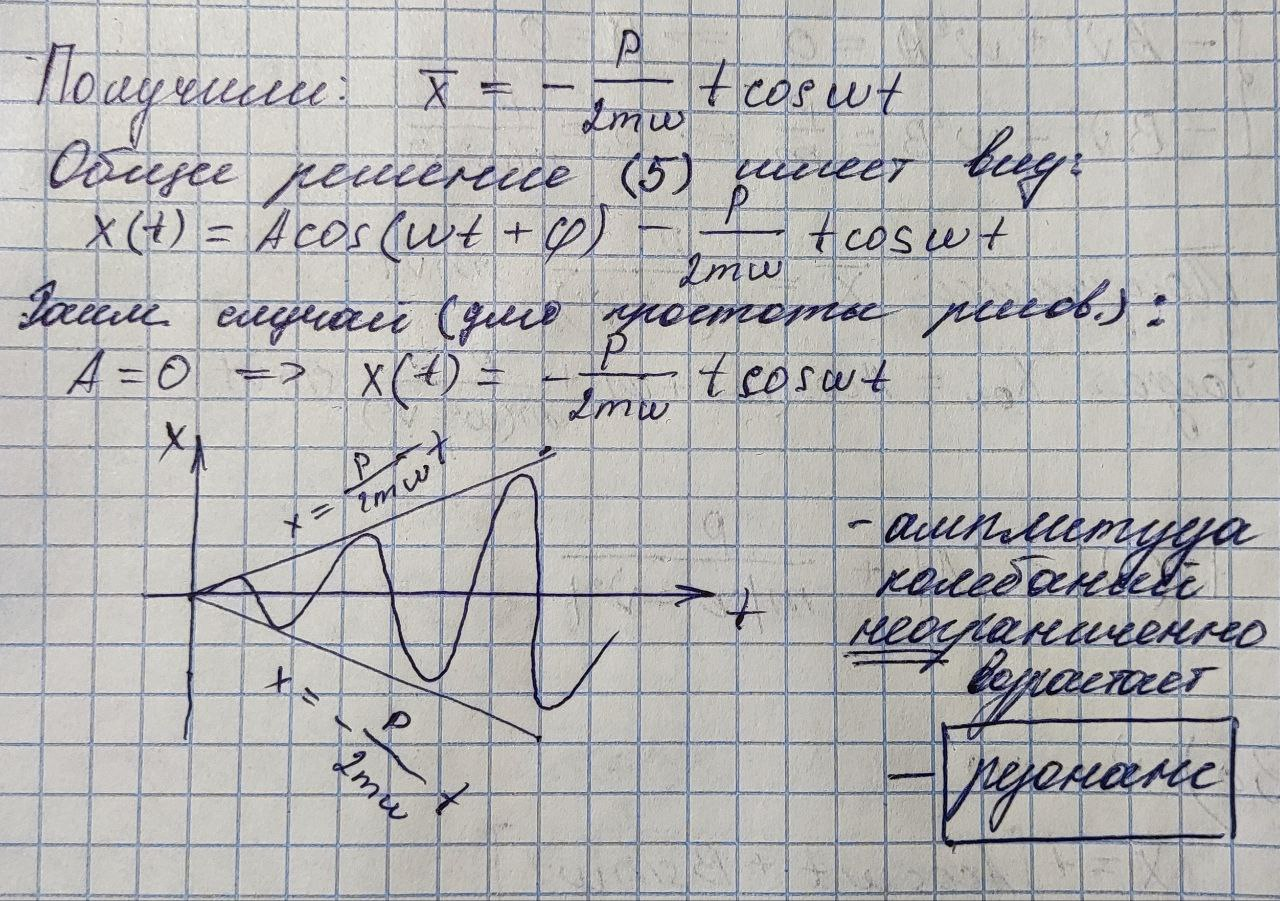 Получили: x̄ = - P/2mω t cos ωt
Общее решение (5) имеет вид:
x(t) = A cos(ωt + φ) - P/2mω t cos ωt
случай (для простоты рисов.):
A = 0 => x(t) = - P/2mω t cos ωt
x
x = P/2mω t
t
x = - P/2mω t
- амплитуда
колебаний
неограниченно
возрастает
- резонанс